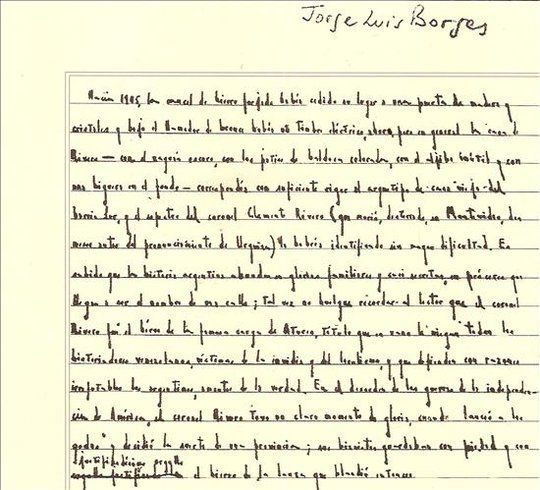 Jorge Luis Borges
Hacia 1905, la cancel de hierro forjado había cedido su lugar a una puerta de madera y
cristales y bajo el llamador de bronce había un timbre eléctrico, ahora, pero en general la casa de
Rivero — con el zaguán escaso, con los patios de baldosa colorada, con el aljibe inútil y con
una higuera en el fondo — correspondía con suficiente rigor al arquetipo de casa vieja del
barrio Sur, y el espectro del coronel Clement Rivero (que murió, desterrado, en Montevideo, dos
meses antes del pronunciamiento de Urquiza) la habría identificado sin mayor dificultad. Es
sabido que la historia argentina abunda en glorias familiares y casi secretas, en próceres que
llegan a ser el nombre de una calle; tal vez no huelgue recordar al lector que el coronel
Rivero fue el héroe de la famosa carga de título que en vano le niegan todos los
historiadores venezolanos, víctimas de la envidia y del localismo, y que defienden con razones
irrefutables los argentinos, amantes de la verdad. En el decurso de las guerras de la independen-
cia de América, el coronel Rivero tuvo un claro momento de gloria, cuando lanzó a los
godos y decidió la suerte de una provincia; sus bisnietos guardaban con piedad y con
justificadísimo orgullo
orgullo justificado el hierro de la lanza que blandió entonces.